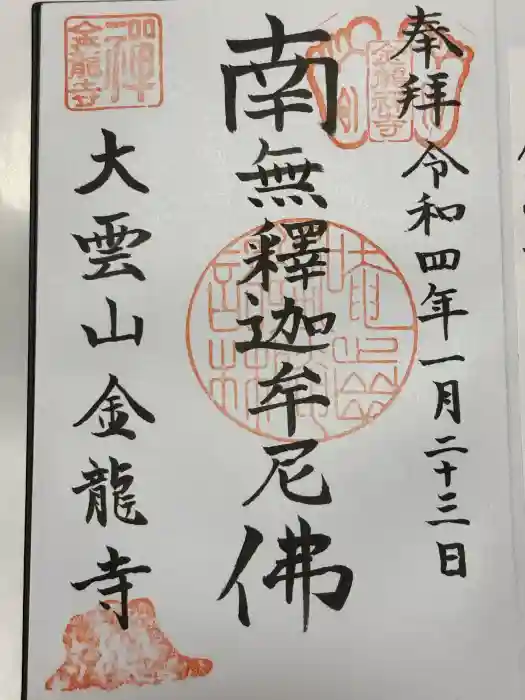 奉拜 令和四年一月二十三日
南無釋迦牟尼佛
大雲山金龍寺
金龍寺